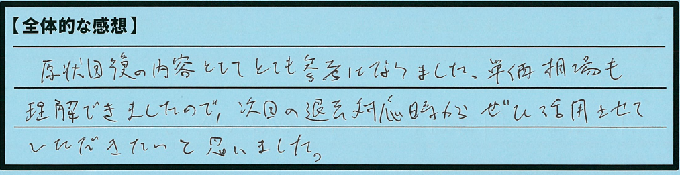 【全体的な感想】
原状回復の内容としてとても参考になりました、単価相場も
理解できましたので、次回の退去対応時から ぜひ活用させて
いただきたいと思いました。